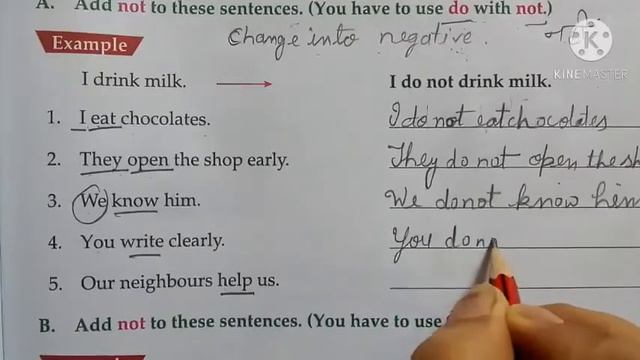 A. Add not to these sentences. (You have to use do with not.)
Example Change into negative.
KINEMASTER
I drink milk. I do not drink milk.
1. I eat chocolates. I do not eat chocolates
2. They open the shop early. They do not open the sh
3. We know him. We do not know him
4. You write clearly. You do n
5. Our neighbours help us.
B. Add not to these sentences. (You have to use